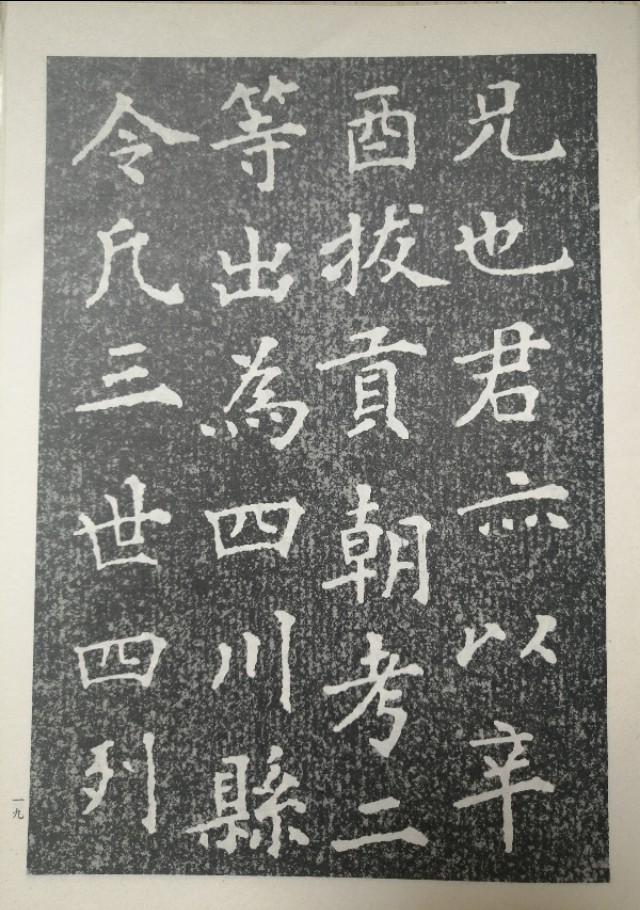 兄也君亦以辛
酉拔貢朝考二
等出為四川縣
令凡三世四列
一九